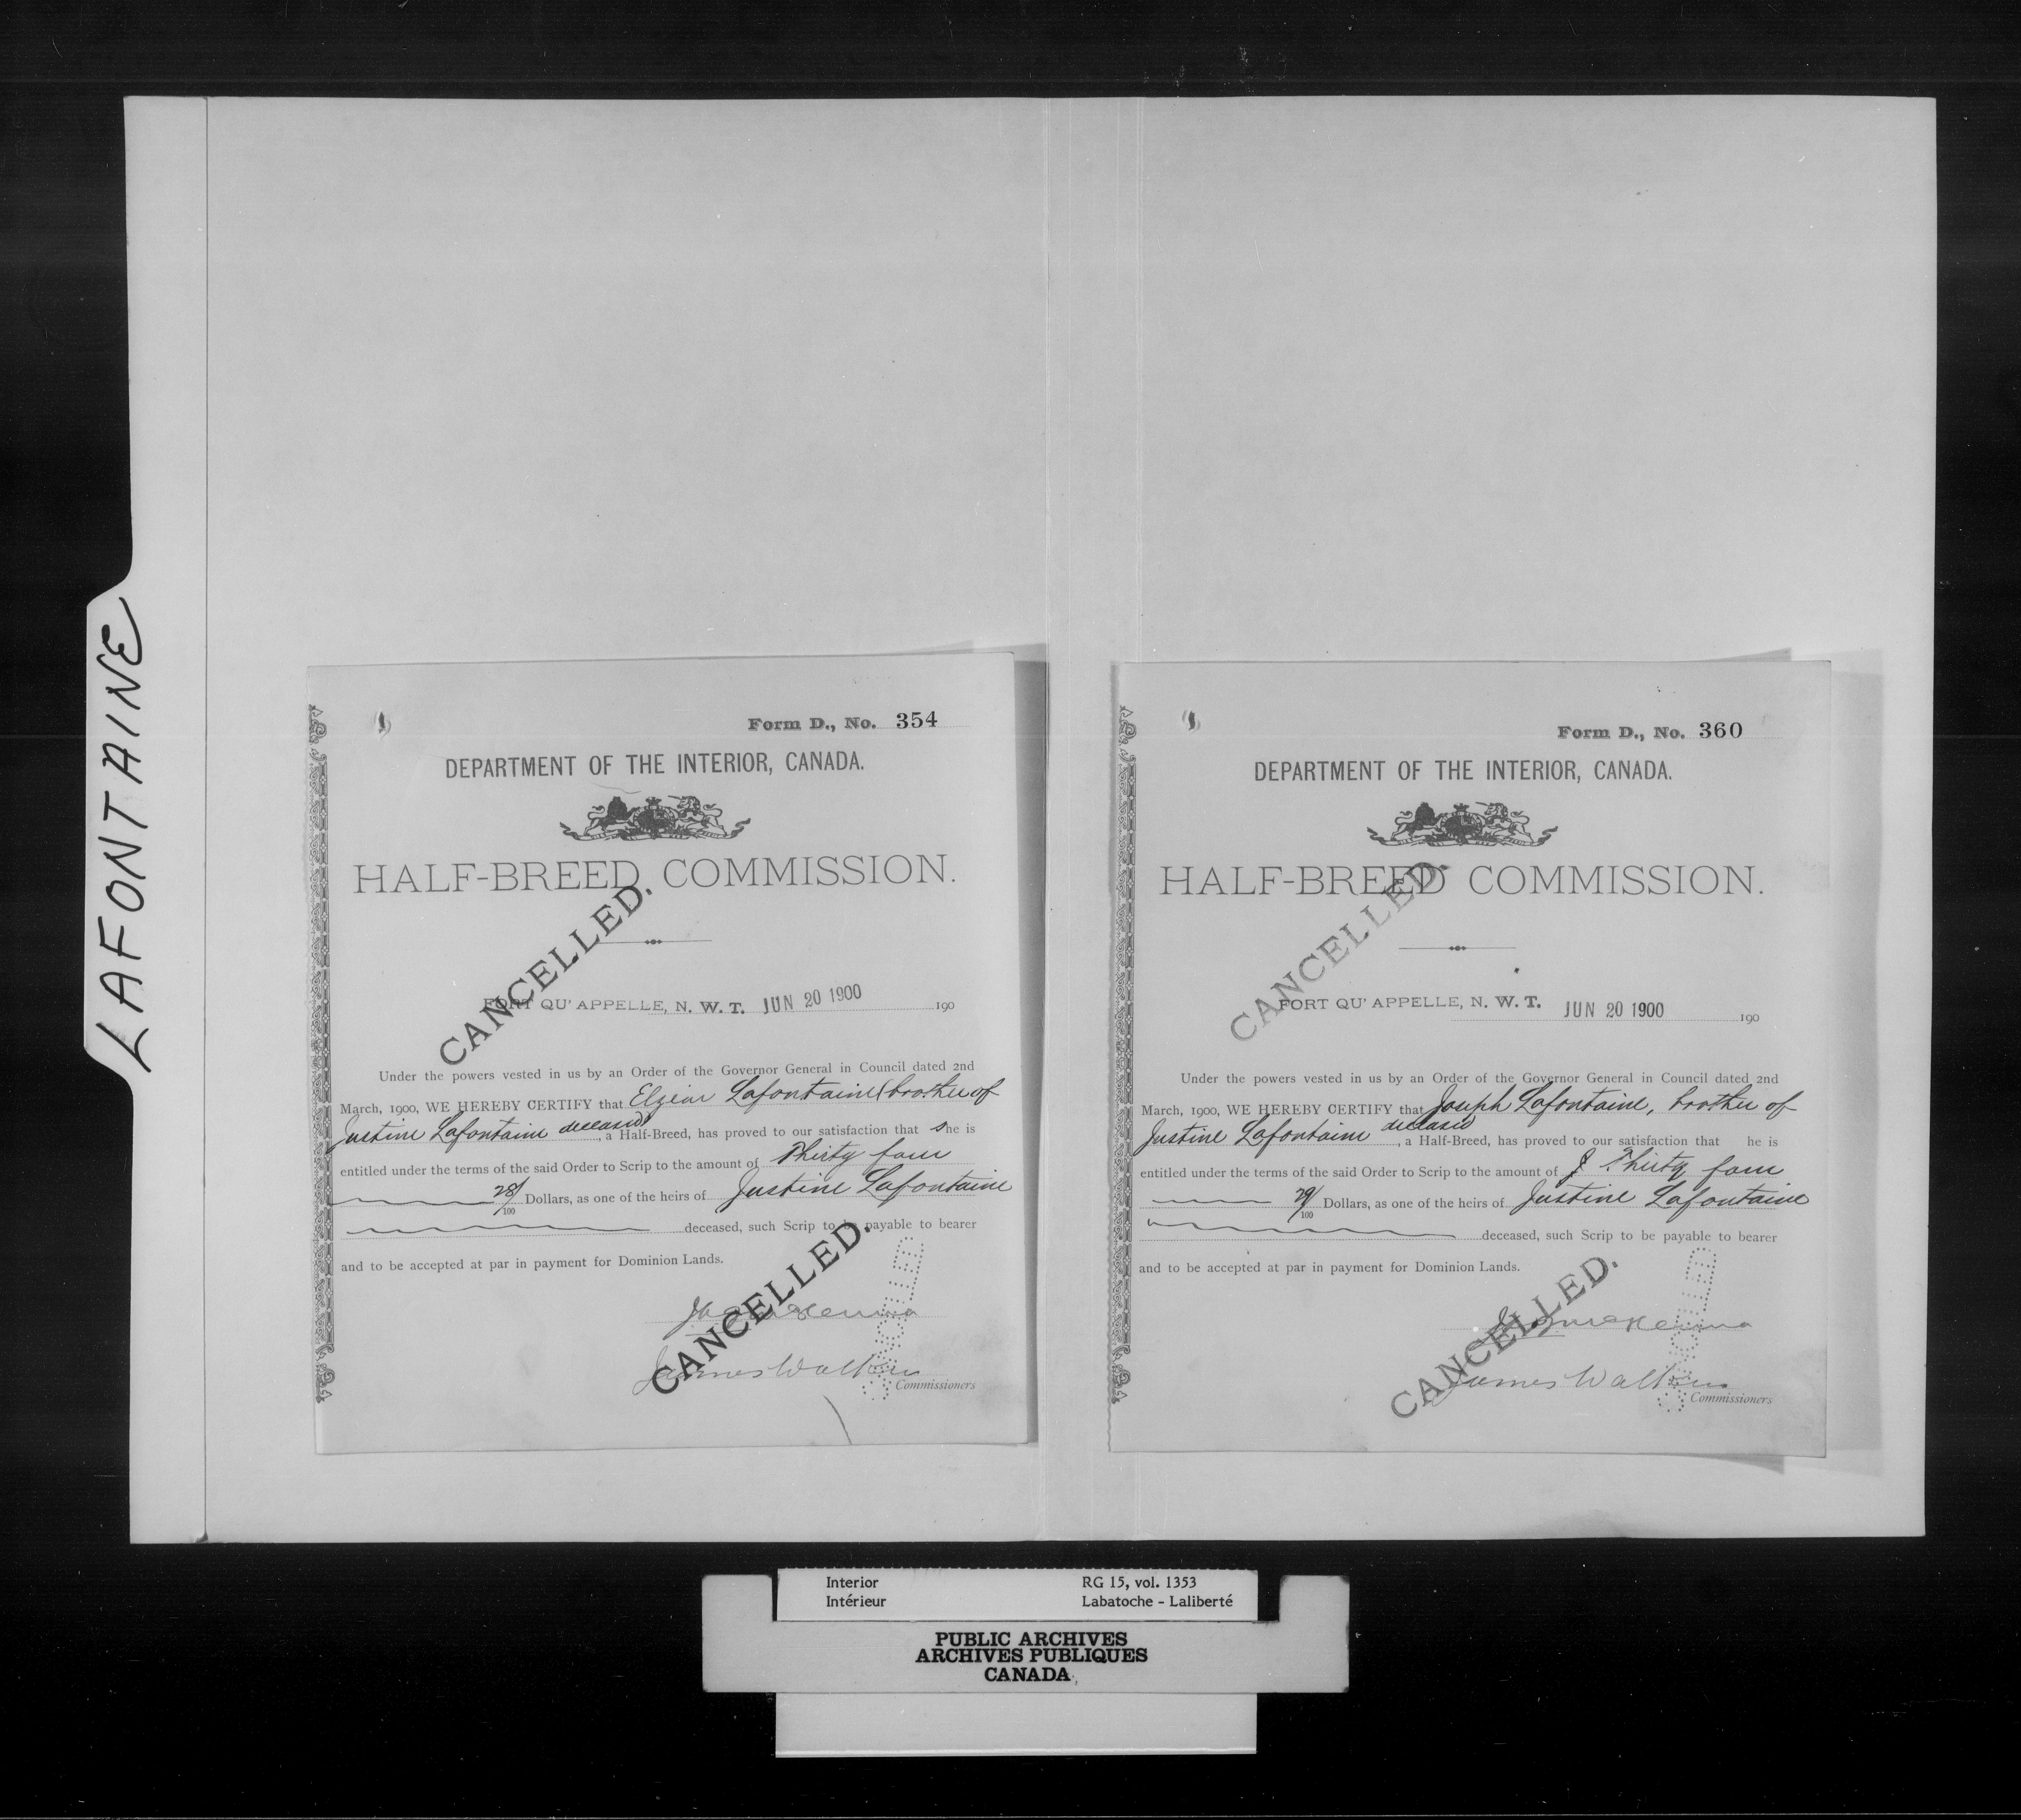 LAFONTAINE
Form D., No. 354
DEPARTMENT OF THE INTERIOR, CANADA.
HALF-BREED COMMISSION.
CANCELLED.
FORT QU'APPELLE, N. W. T. JUN 20 1900 190
Under the powers vested in us by an Order of the Governor General in Council dated 2nd
March, 1900, WE HEREBY CERTIFY that Elzear Lafontaine (brother of
Justine Lafontaine deceased), a Half-Breed, has proved to our satisfaction that she is
entitled under the terms of the said Order to Scrip to the amount of Thirty four
28/100 Dollars, as one of the heirs of Justine Lafontaine
deceased, such Scrip to be payable to bearer
and to be accepted at par in payment for Dominion Lands.
CANCELLED.
JAJ McKenna
James Walker
Commissioners
Form D., No. 360
DEPARTMENT OF THE INTERIOR, CANADA.
HALF-BREED COMMISSION.
CANCELLED.
FORT QU'APPELLE, N. W. T. JUN 20 1900 190
Under the powers vested in us by an Order of the Governor General in Council dated 2nd
March, 1900, WE HEREBY CERTIFY that Joseph Lafontaine, brother of
Justine Lafontaine deceased, a Half-Breed, has proved to our satisfaction that he is
entitled under the terms of the said Order to Scrip to the amount of Thirty four
29/100 Dollars, as one of the heirs of Justine Lafontaine
deceased, such Scrip to be payable to bearer
and to be accepted at par in payment for Dominion Lands.
CANCELLED.
JAJ McKenna
James Walker
Commissioners
Interior
Intérieur
RG 15, vol. 1353
Labatoche - Laliberté
PUBLIC ARCHIVES
ARCHIVES PUBLIQUES
CANADA